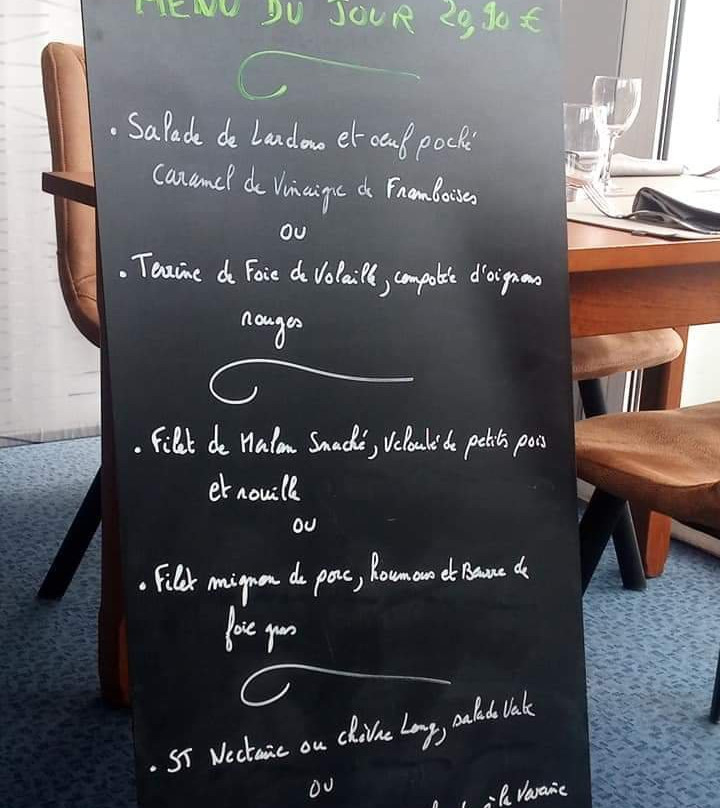 MENU DU JOUR 29,90 €
. Salade de Lardons et oeuf poché
Caramel de Vinaigre de Framboises
OU
. Terrine de Foie de Volaille, compotée d'oignons
rouges
. Filet de Merlan Snacké, Velouté de petits pois
et rouille
OU
. Filet mignon de porc, houmous et Beurre de
foie gras
. ST Nectaire ou chèvre Long, salade Verte
OU
à la Verveine